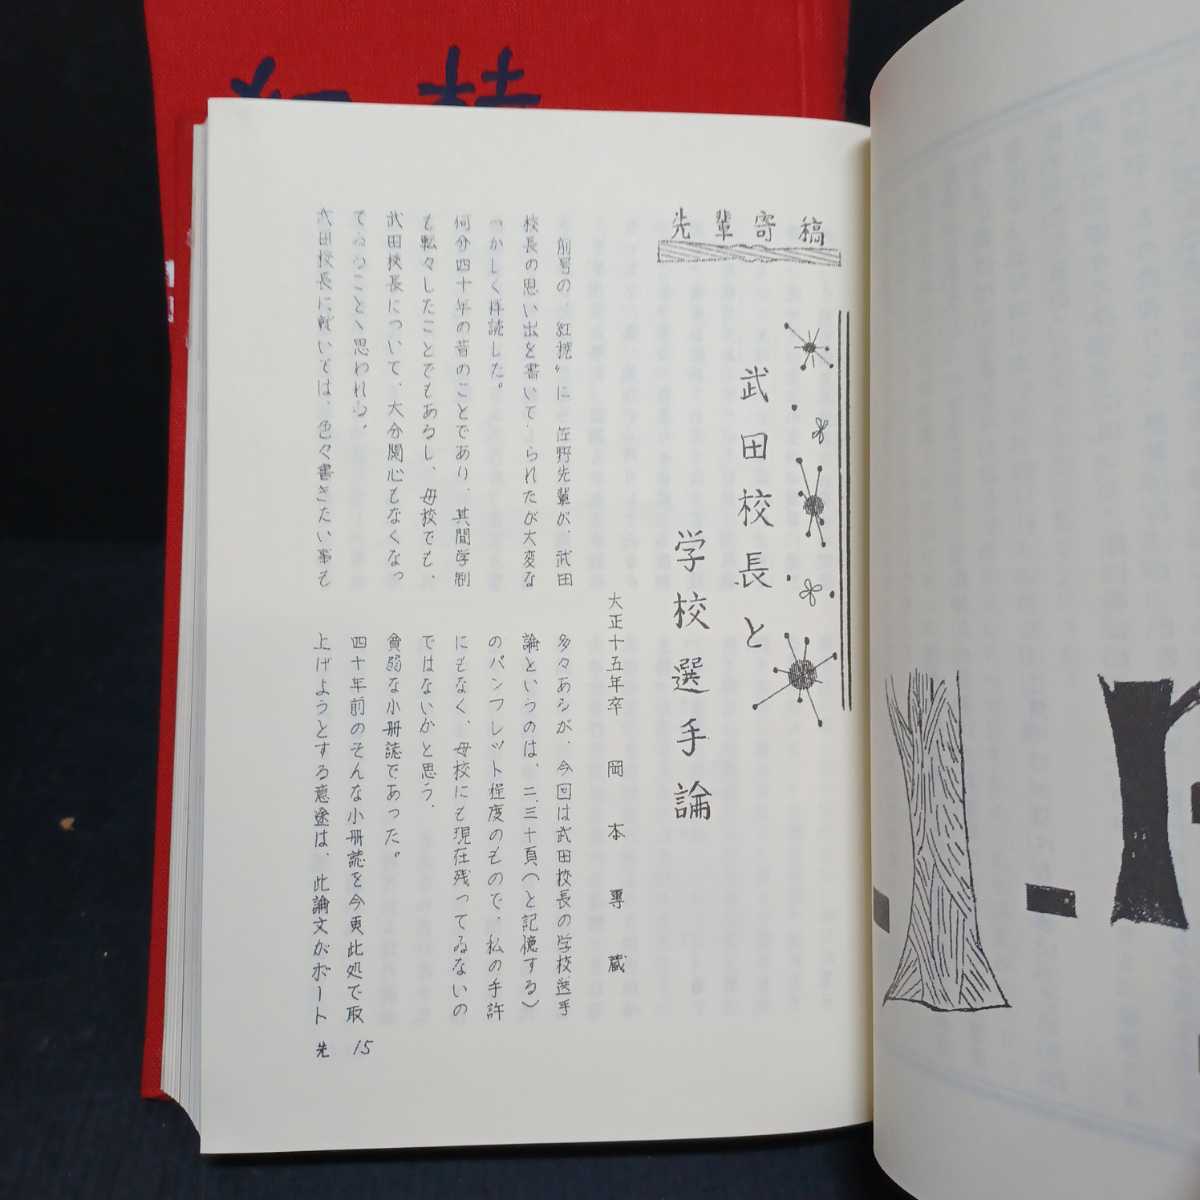 先輩寄稿
武田校長と
学校選手論
大正十五年卒 岡本専蔵
前号の〝紅椀〟に、佐野先輩が、武田
校長の思い出を書いて
られたが大変な
かしく拝読した。
何分四十年の昔のことであり、其間学制
も転々したことでもあるし、母校でも、
武田校長について、大分関心もなくなっ
てゐることゝ思われる。
武田校長に就いては、色々書きたい事も
多々あるが、今回は武田校長の学校選手
論というのは、二、三十頁(と記憶する)
のパンフレット程度のもので、私の手許
にもなく、母校にも現在残ってゐないの
ではないかと思う。
貧弱な小冊誌であった。
四十年前のそんな小冊誌を今更此処で取
上げようとする意途は、此論文がボート
先 15